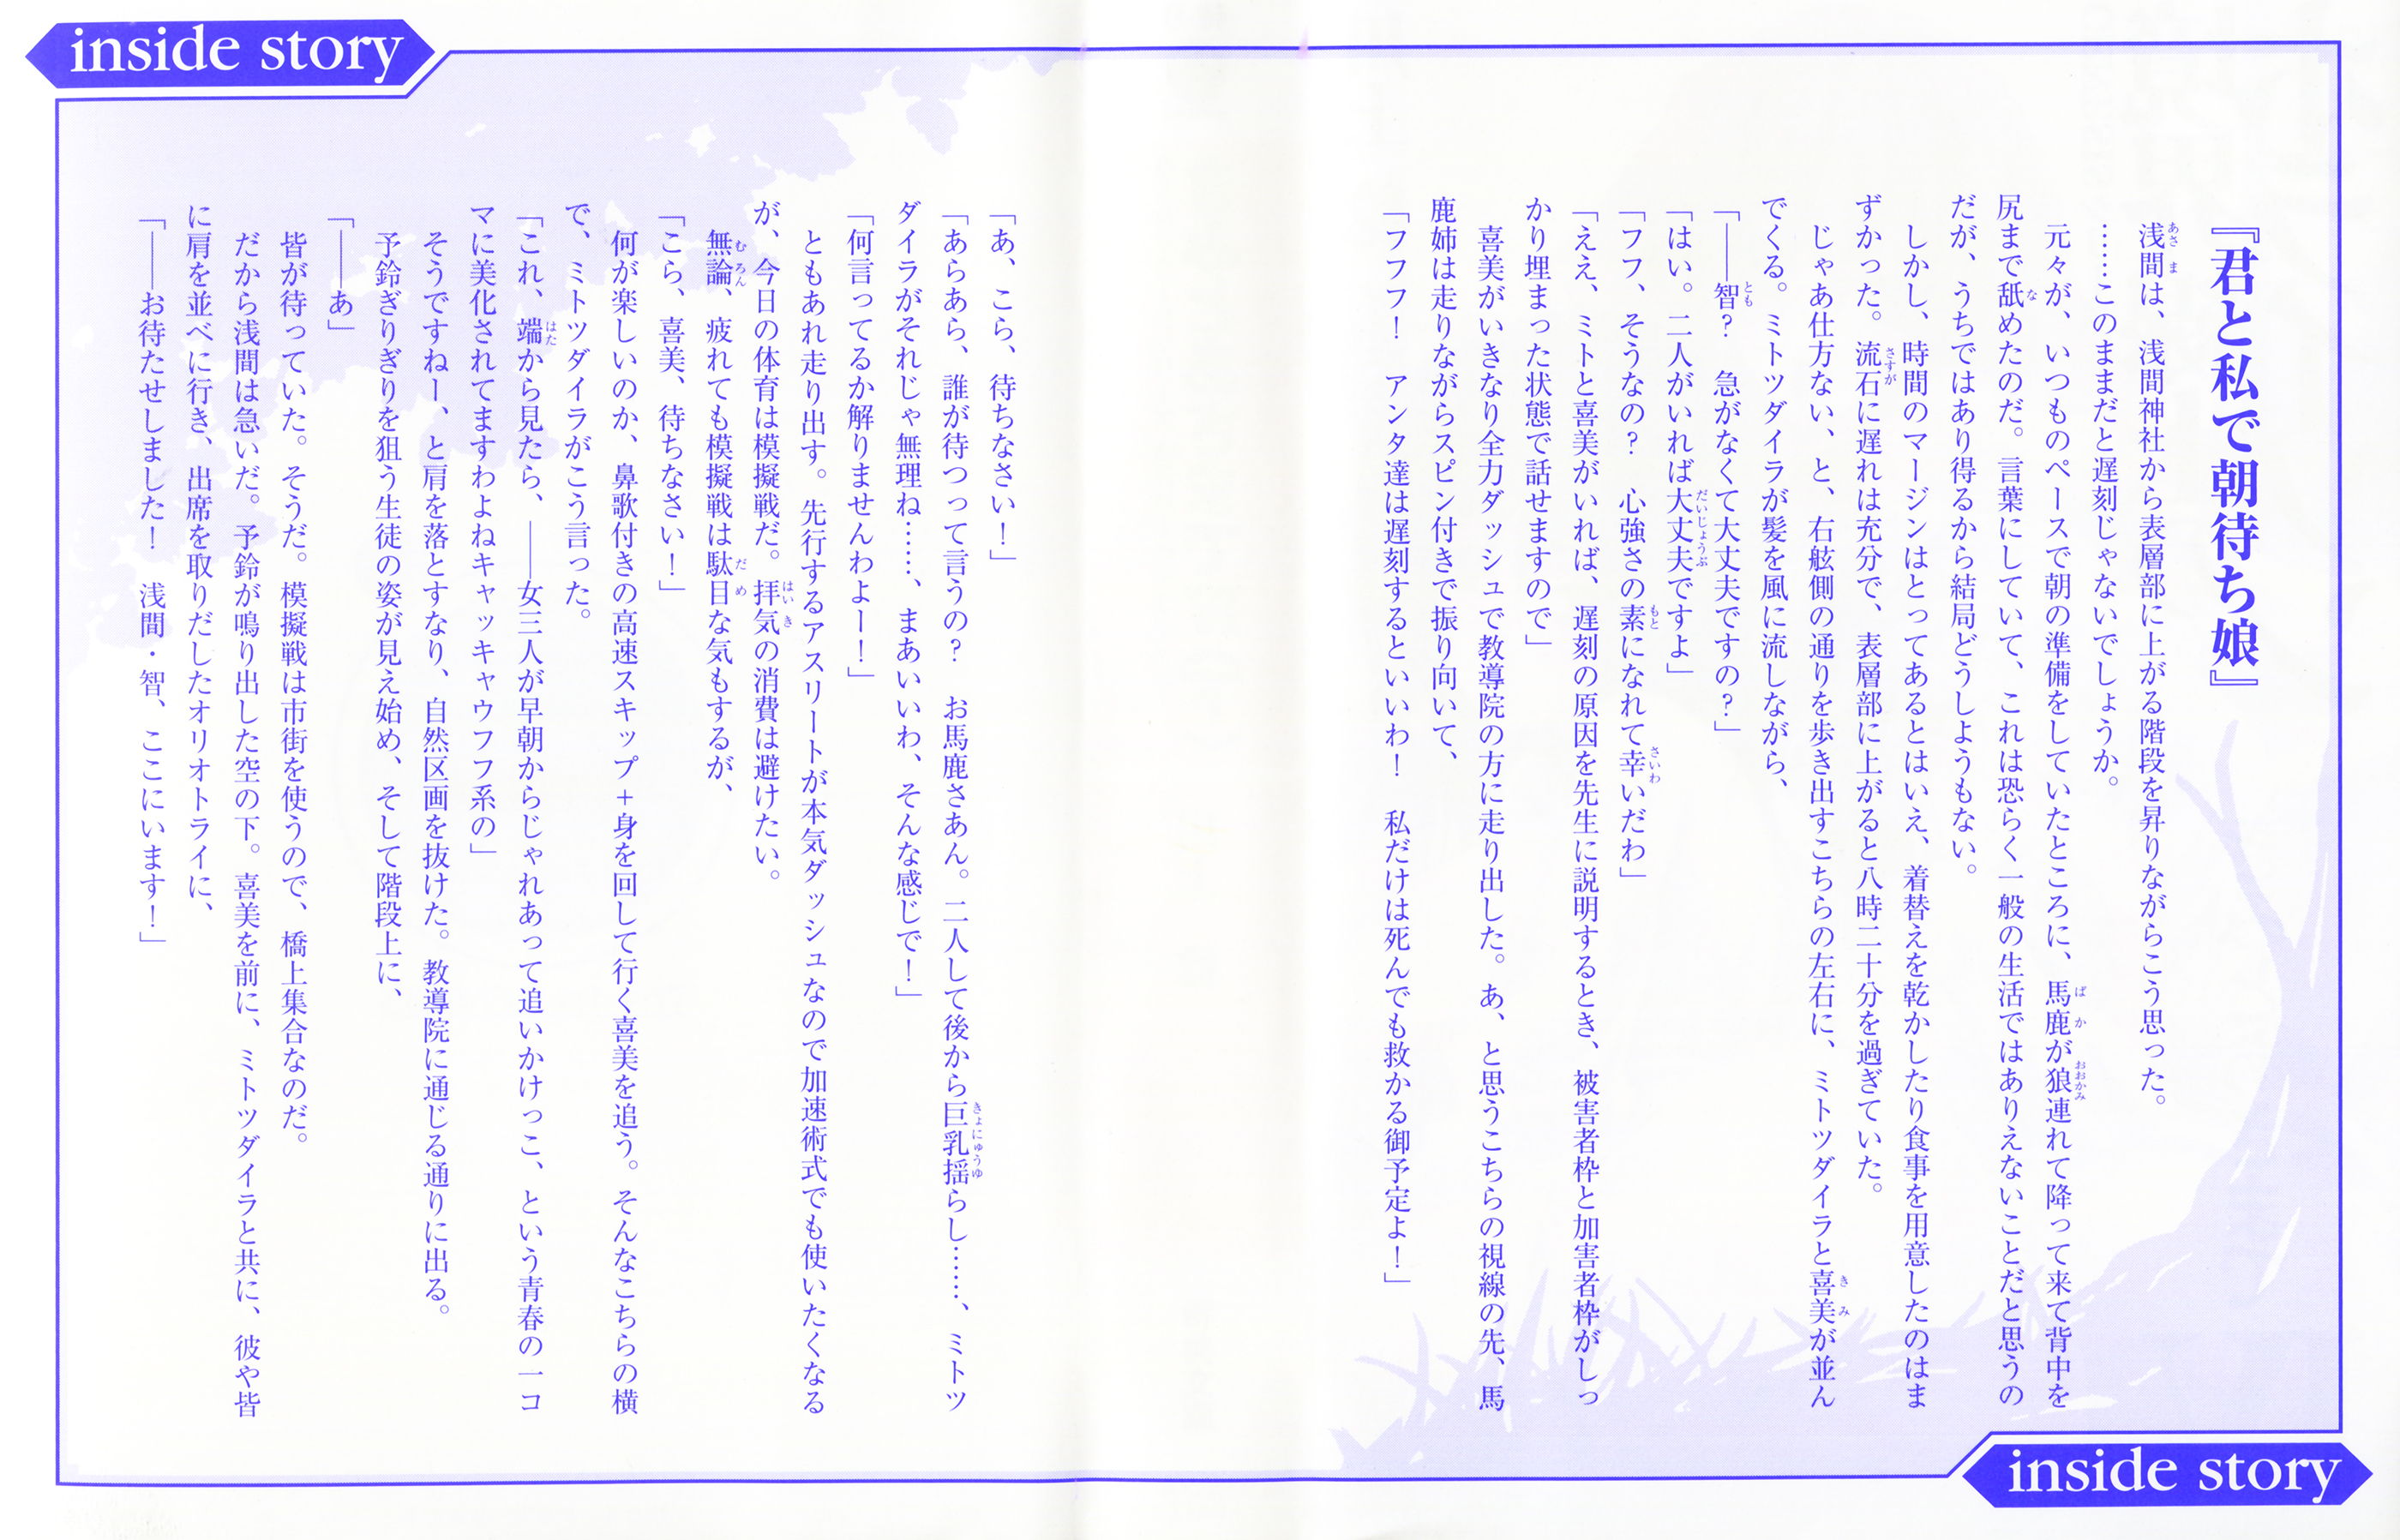 inside story
『君と私で朝待ち娘』
浅間は、浅間神社から表層部に上がる階段を昇りながらこう思った。
……このままだと遅刻じゃないでしょうか。
元々が、いつものペースで朝の準備をしていたところに、馬鹿が狼連れて降って来て背中を
尻まで舐めたのだ。言葉にしていて、これは恐らく一般の生活ではありえないことだと思うの
だが、うちではあり得るから結局どうしようもない。
しかし、時間のマージンはとってあるとはいえ、着替えを乾かしたり食事を用意したのはま
ずかった。流石に遅れは充分で、表層部に上がると八時二十分を過ぎていた。
じゃあ仕方ない、と、右舷側の通りを歩き出すこちらの左右に、ミトツダイラと喜美が並ん
でくる。ミトツダイラが髪を風に流しながら、
「――智？　急がなくて大丈夫ですの？」
「はい。二人がいれば大丈夫ですよ」
「フフ、そうなの？　心強さの素になれて幸いだわ」
「ええ、ミトと喜美がいれば、遅刻の原因を先生に説明するとき、被害者枠と加害者枠がしっ
かり埋まった状態で話せますので」
喜美がいきなり全力ダッシュで教導院の方に走り出した。あ、と思うこちらの視線の先、馬
鹿姉は走りながらスピン付きで振り向いて、
「フフフ！　アンタ達は遅刻するといいわ！　私だけは死んでも救かる御予定よ！」
「あ、こら、待ちなさい！」
「あらあら、誰が待つって言うの？　お馬鹿さあん。二人して後から巨乳揺らし……、ミトツ
ダイラがそれじゃ無理ね……、まあいいわ、そんな感じで！」
「何言ってるか解りませんわよー！」
ともあれ走り出す。先行するアスリートが本気ダッシュなので加速術式でも使いたくなる
が、今日の体育は模擬戦だ。拝気の消費は避けたい。
無論、疲れても模擬戦は駄目な気もするが、
「こら、喜美、待ちなさい！」
何が楽しいのか、鼻歌付きの高速スキップ+身を回して行く喜美を追う。そんなこちらの横
で、ミトツダイラがこう言った。
「これ、端から見たら、――女三人が早朝からじゃれあって追いかけっこ、という青春の一コ
マに美化されてますわよねキャッキャウフフ系の」
そうですねー、と肩を落とすなり、自然区画を抜けた。教導院に通じる通りに出る。
予鈴ぎりぎりを狙う生徒の姿が見え始め、そして階段上に、
「――あ」
皆が待っていた。そうだ。模擬戦は市街を使うので、橋上集合なのだ。
だから浅間は急いだ。予鈴が鳴り出した空の下。喜美を前に、ミトツダイラと共に、彼や皆
に肩を並べに行き、出席を取りだしたオリオトライに、
「――お待たせしました！　浅間・智、ここにいます！」
inside story